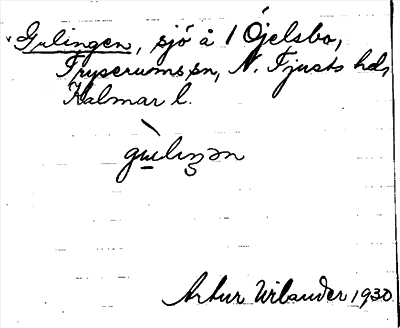 Gulingen, sjö å 1 Öjelsbo,
Tryserums sn, N. Tjusts hd,
Kalmar l.
gùlıŋən
Artur Wilander 1930